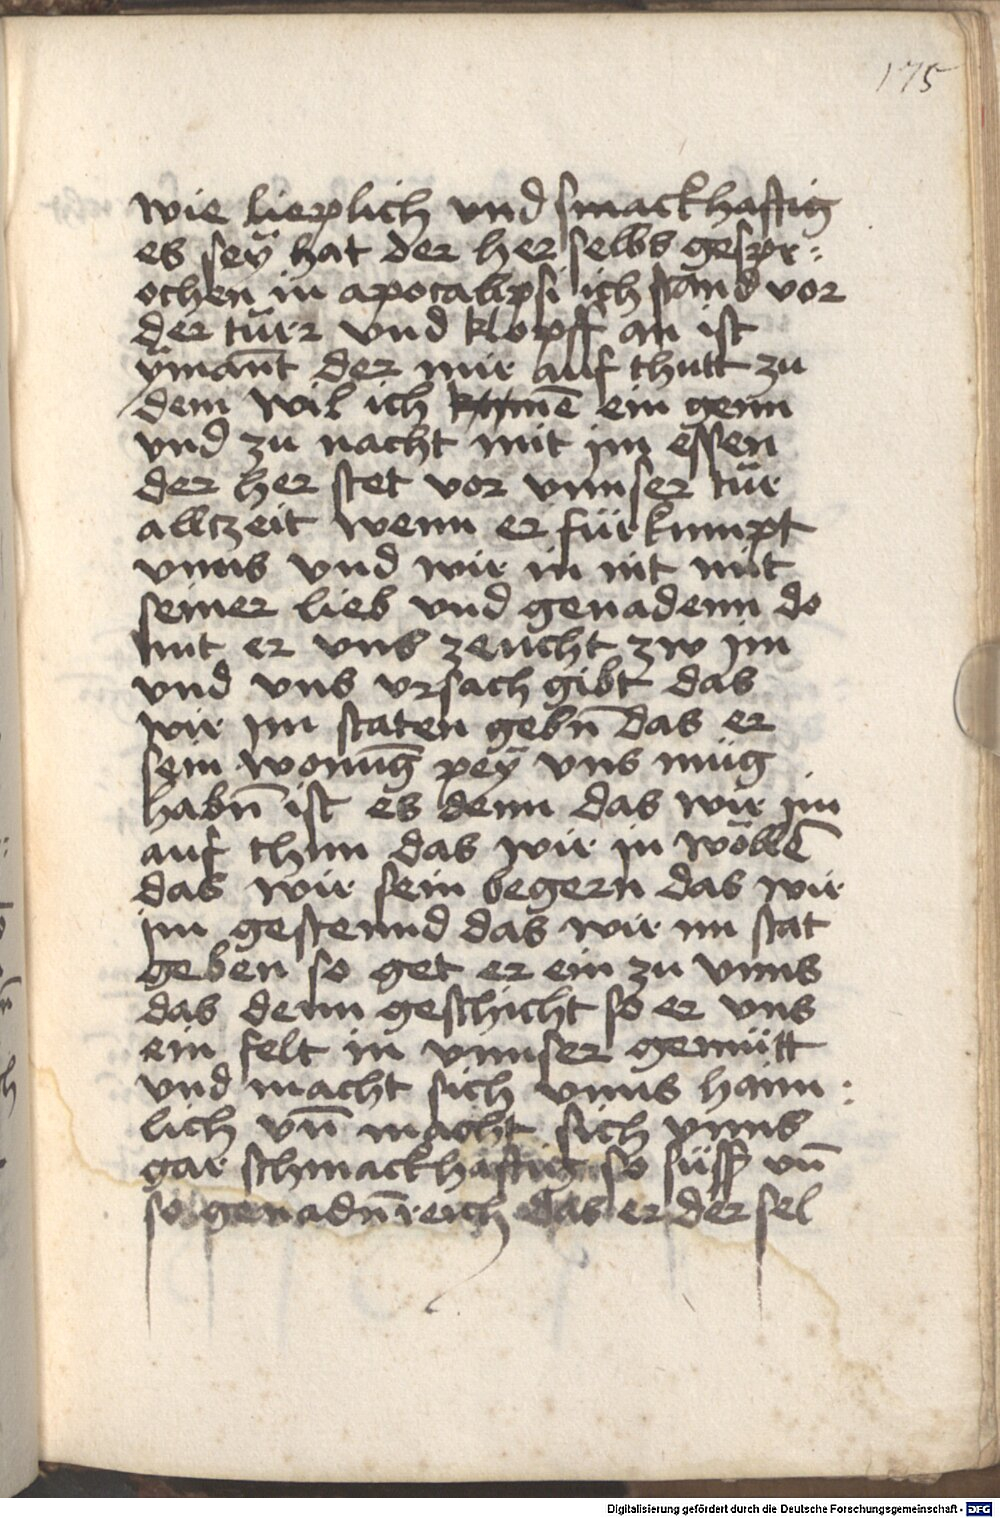 175
wie lieplich vnd smackhafftig
es seÿ hat der her selbs gespr:
ochen in apocallipsi ich stand vor
der tür vnd klopff an ist
ÿmant̄ der mir auf thutt zu
dem wil ich kumē ein genn
vnd zu nacht mit im essen
der her stet vor vnnser tür
alltzeit wenn er fürkumpt
vnns vnd wir in nit mit
seiner lieb vnd genadenn do
mit er vns zeucht zw im
vnd vns vrsach gibt das
wir im staten gebn̄ das er
sein wonūg peÿ vns müg
habn̄ ist es denn das wir im
auf thun das wir in wöllē
das wir sein begern das wir
im gestennd das wir im stat
geben so get er ein zu vnns
das denn geschicht so er vns
ein felt in vnnser gemütt
vnd macht sich vnns haim:
lich vn̄ macht sich vnns
gar schmackhafftig so süss vn̄
so genadn̄reich das er der sel
Digitalisierung gefördert durch die Deutsche Forschungsgemeinschaft - DFG